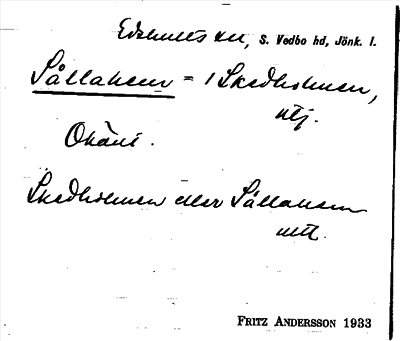 Edshults sn, S. Vedbo hd, Jönk. l.
Sållahem = 1 Skedholmen,
utj.
Okänt.
Skedholmen eller Sållahem
utt.
FRITZ ANDERSSON 1933